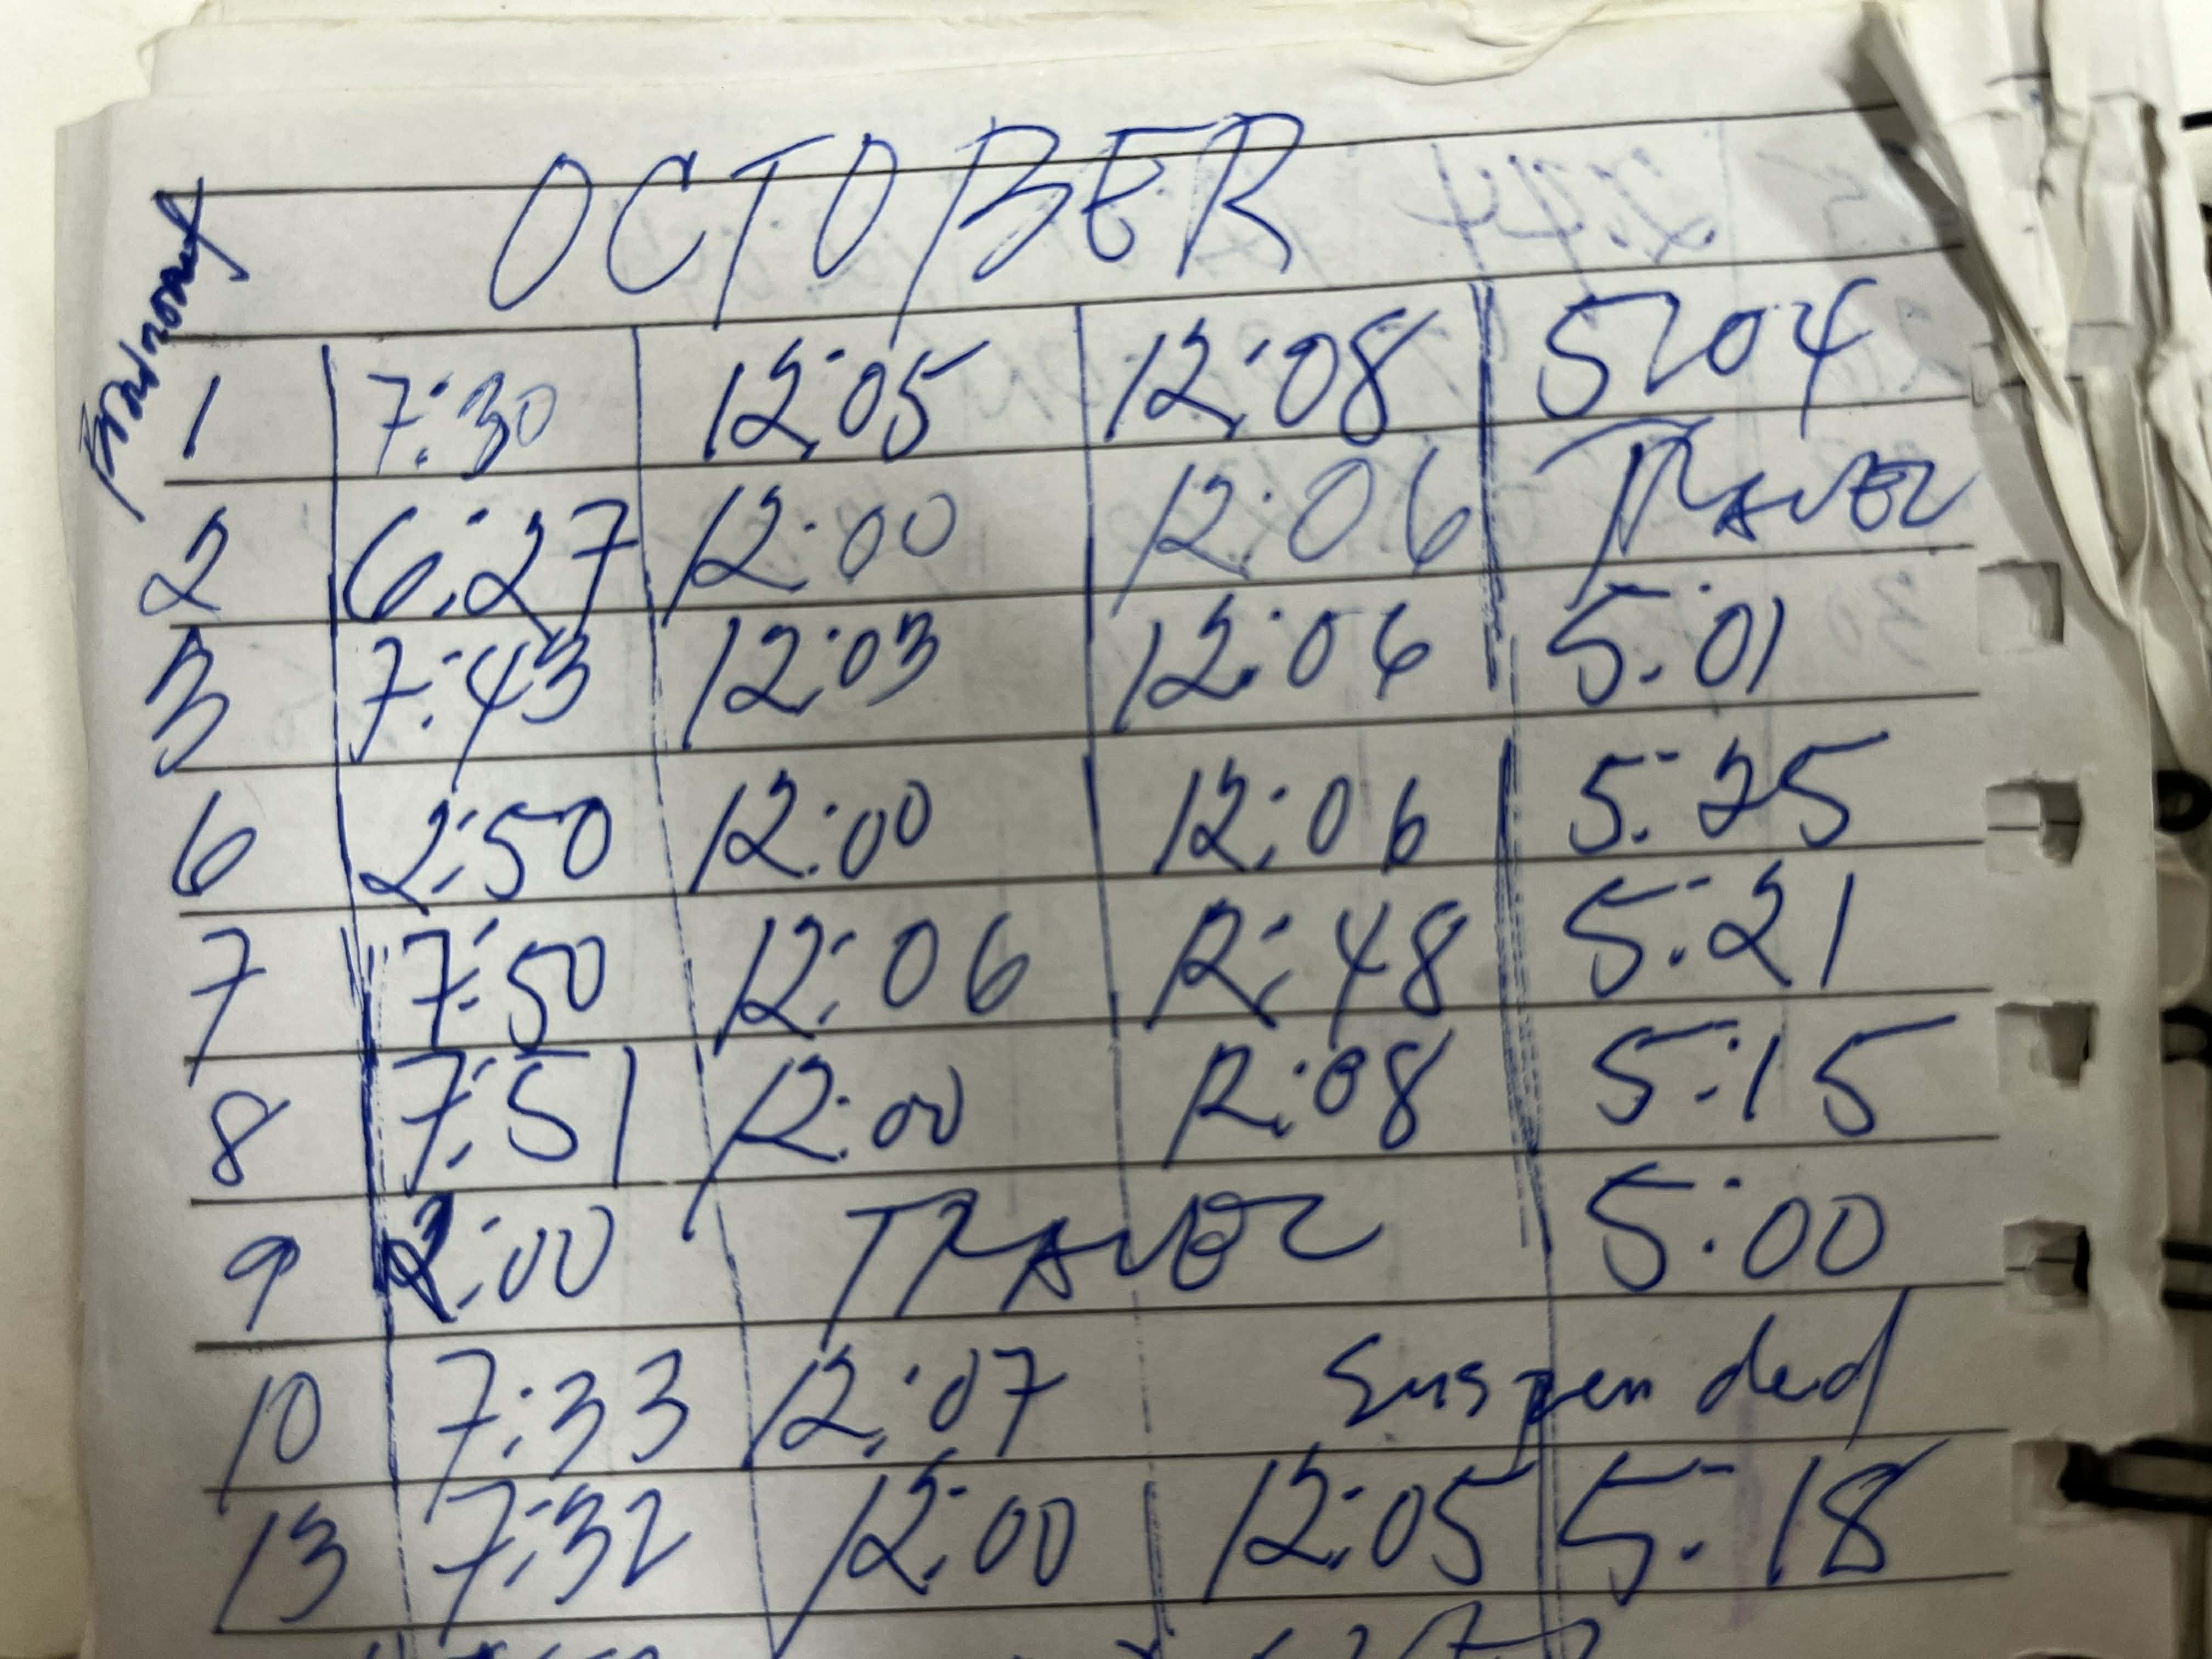 OCTOBER
1 7:30 12:05 12:08 5:04
2 6:27 12:00 12:06 TRAVEL
3 7:43 12:03 12:06 5:01
6 2:50 12:00 12:06 5:25
7 7:50 12:06 12:48 5:21
8 7:51 12:00 12:08 5:15
9 2:00 TRAVEL 5:00
10 7:33 12:07 Suspended
13 7:32 12:00 12:05 5:18